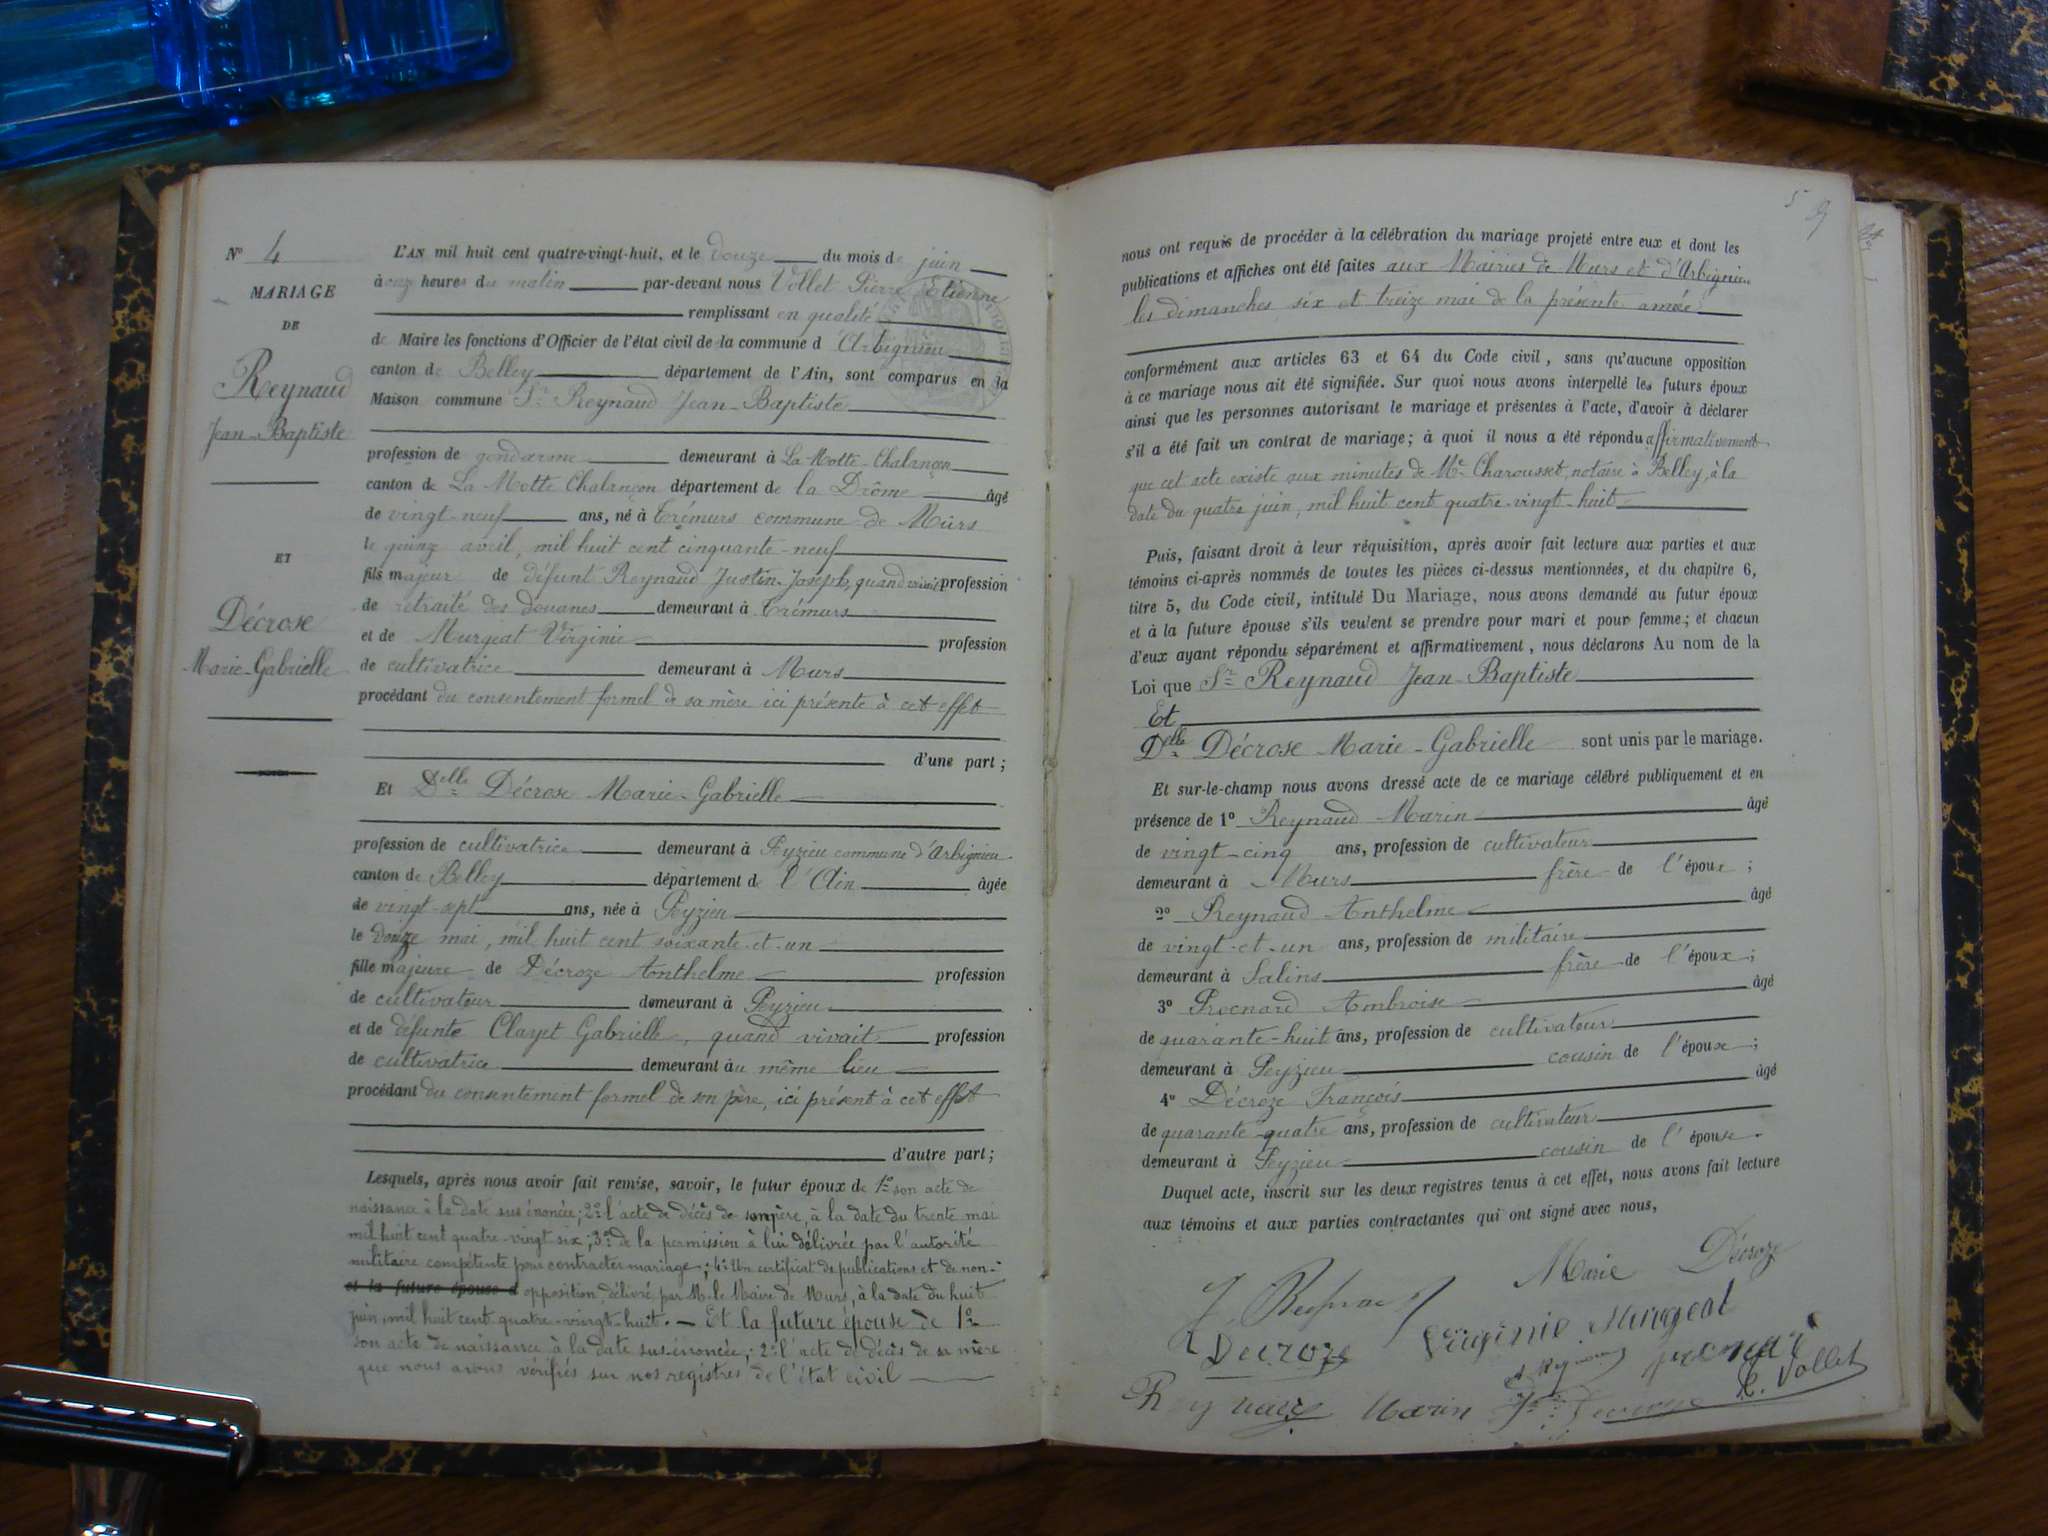 N° 4
MARIAGE
DE
Reynaud
Jean-Baptiste
ET
Décrose
Marie-Gabrielle
L'AN mil huit cent quatre-vingt-huit, et le douze du mois de juin
à onze heures du matin par-devant nous Vollet Pierre Etienne
remplissant en qualité
de Maire les fonctions d'Officier de l'état civil de la commune d'Arbignieu
canton de Belley département de l'Ain, sont comparus en la
Maison commune Sr Reynaud Jean-Baptiste
profession de gendarme demeurant à La Motte-Chalançon
canton de La Motte Chalançon département de la Drôme âgé
de vingt-neuf ans, né à Crémurs commune de Mûrs
le quinze avril, mil huit cent cinquante-neuf
fils majeur de défunt Reynaud Justin-Joseph, quand vivait profession
de retraité des douanes demeurant à Crémurs
et de Murgeat Virginie profession
de cultivatrice demeurant à Murs
procédant du consentement formel de sa mère ici présente à cet effet
d'une part ;
Et Delle Décrose Marie-Gabrielle
profession de cultivatrice demeurant à Peyzieu commune d'Arbignieu
canton de Belley département de l'Ain âgée
de vingt-sept ans, née à Peyzieu
le douze mai, mil huit cent soixante-et-un
fille majeure de Décroze Anthelme profession
de cultivateur demeurant à Peyzieu
et de défunte Clayet Gabrielle, quand vivait profession
de cultivatrice demeurant au même lieu
procédant du consentement formel de son père, ici présent à cet effet
d'autre part ;
Lesquels, après nous avoir fait remise, savoir, le futur époux de 1° son acte de
naissance à la date sus énoncée ; 2° l'acte de décès de son père, à la date du trente mai
mil huit cent quatre-vingt six ; 3° de la permission à lui délivrée par l'autorité
militaire compétente pour contracter mariage ; 4° Un certificat de publications et de non-
et la future épouse d opposition délivré par Mr le Maire de Murs, à la date du huit
juin, mil huit cent quatre-vingt-huit. — Et la future épouse de 1°
son acte de naissance à la date sus-énoncée ; 2° l'acte de décès de sa mère
que nous avons vérifiés sur nos registres de l'état civil
5
nous ont requis de procéder à la célébration du mariage projeté entre eux et dont les
publications et affiches ont été faites aux Mairies de Murs et d'Arbignieu
les dimanches six et treize mai de la présente année
conformément aux articles 63 et 64 du Code civil, sans qu'aucune opposition
à ce mariage nous ait été signifiée. Sur quoi nous avons interpellé les futurs époux
ainsi que les personnes autorisant le mariage et présentes à l'acte, d'avoir à déclarer
s'il a été fait un contrat de mariage ; à quoi il nous a été répondu affirmativement
que cet acte existe aux minutes de Me Charousset, notaire à Belley, à la
date du quatre juin, mil huit cent quatre-vingt-huit
Puis, faisant droit à leur réquisition, après avoir fait lecture aux parties et aux
témoins ci-après nommés de toutes les pièces ci-dessus mentionnées, et du chapitre 6,
titre 5, du Code civil, intitulé Du Mariage, nous avons demandé au futur époux
et à la future épouse s'ils veulent se prendre pour mari et pour femme ; et chacun
d'eux ayant répondu séparément et affirmativement, nous déclarons Au nom de la
Loi que Sr Reynaud Jean-Baptiste
Et
Delle Décrose Marie-Gabrielle sont unis par le mariage.
Et sur-le-champ nous avons dressé acte de ce mariage célébré publiquement et en
présence de 1° Reynaud Marin âgé
de vingt-cinq ans, profession de cultivateur
demeurant à Murs frère de l'époux ;
2° Reynaud Anthelme âgé
de vingt-et-un ans, profession de militaire
demeurant à Salins frère de l'époux ;
3° Procnard Ambroise âgé
de quarante-huit ans, profession de cultivateur
demeurant à Peyzieu cousin de l'époux ;
4° Décroze François âgé
de quarante-quatre ans, profession de cultivateur
demeurant à Peyzieu cousin de l'épouse.
Duquel acte, inscrit sur les deux registres tenus à cet effet, nous avons fait lecture
aux témoins et aux parties contractantes qui ont signé avec nous,
Marie Décroze
J Reynaud
Décroze Virginie Murgeat
Reynaud Marin
E. Vollet